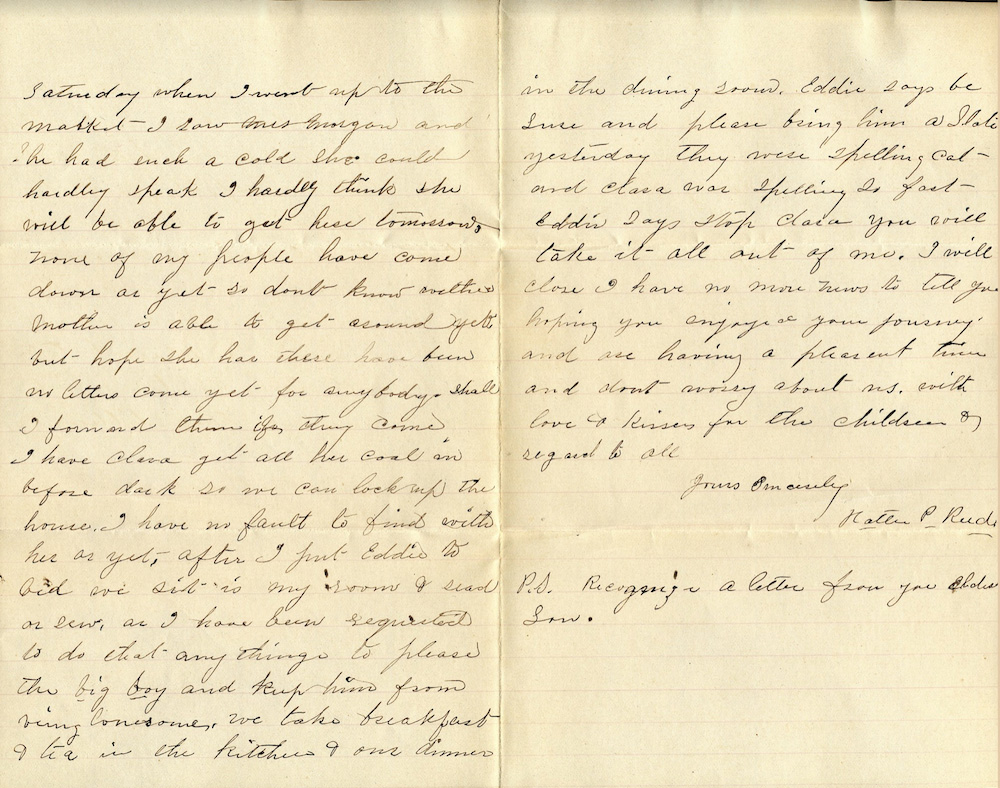 Saturday when I went up to the
market I saw Mrs Morgan and
she had such a cold she could
hardley speak I hardly think she
will be able to get here tomorrow,
none of my people have come
down as yet so dont know wether
Mother is able to get around yet
but hope she has there have been
no letters come yet for anybody. shall
I forward them if they come
I have Clara get all her coal in
before dark so we can lock up the
house. I have no fault to find with
her as yet, after I put Eddie to
bed we sit is my room & read
or sew, as I have been requested
to do that anythinge to please
the big boy and keep him from
being lonesome, we take breakfast
& tea in the kitchen & our dinner
in the dining room. Eddie says be
sure and please bring him a Slate
yesterday they were spelling cat
and Clara was spelling so fast
Eddie says stop Clara you will
take it all out of me. I will
close I have no more news to tell you
hoping you enjoyed your journey.
and are having a pleasent time
and dont worry about us. with
love & kisses for the children &
regard to all
Yours Sincerely
Hattie P. Reed
P.S. a letter from you